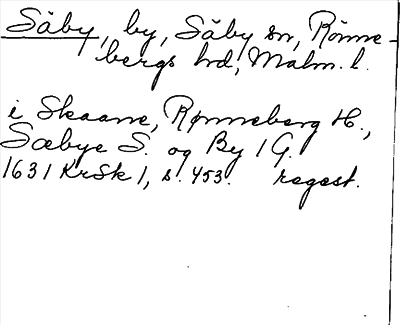 Säby, by, Säby sn, Rönne-
bergs hd, Malm. l.
i Skaane, Rønneberg H.,
Sæbye S. og By 1 G.
1631 KrSk 1, s. 453. regest.